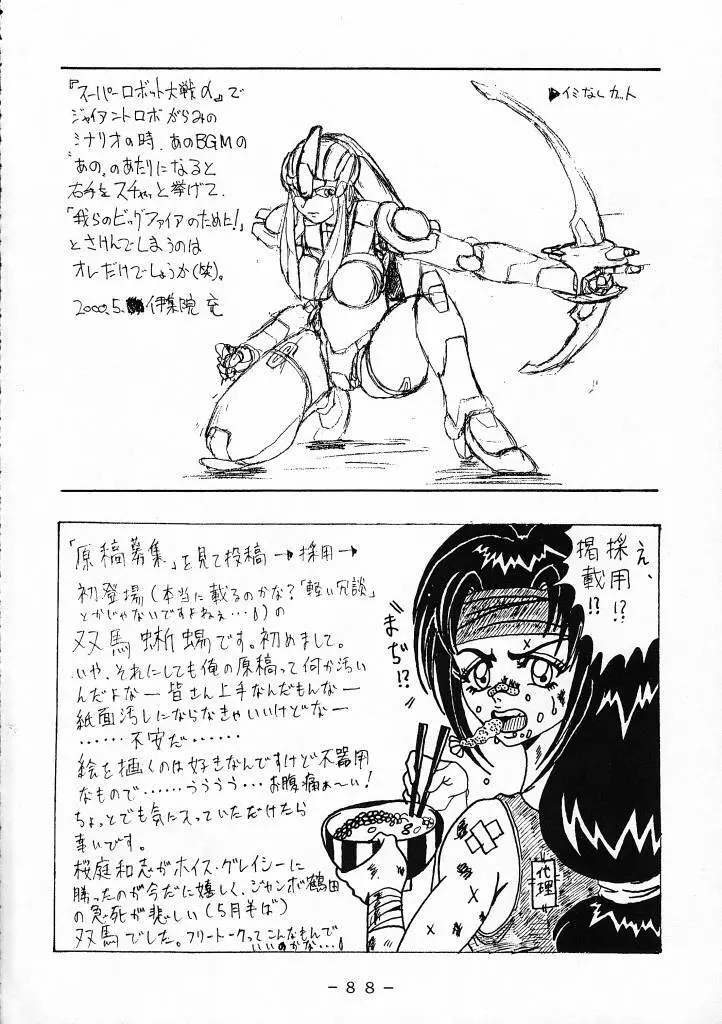 『スーパーロボット大戦α』で
ジャイアントロボがらみの
シナリオの時、あのBGMの
"あの"のあたりになると
右手をスチャッと挙げて、
「我らのビッグファイアのために!」
とさけんでしまうのは
オレだけでしょうか(笑)。
2000.5. 伊集院 竜
▶イミなしカット
「原稿募集」を見て投稿→採用→
初登場(本当に載るのかな?「軽い冗談」
とかじゃないですよねぇ…!)の
双馬蜥蜴です。初めまして。
いや、それにしても俺の原稿って何か汚い
んだよなー皆さん上手なんだもんなー
紙面汚しにならなきゃいいけどなー
……不安だ……
絵を描くのは好きなんですけど不器用
なもので……ううう…お腹痛ぁ〜い!
ちょっとでも気に入っていただけたら
幸いです。
桜庭和志がホイス・グレイシーに
勝ったのが今だに嬉しく、ジャンボ鶴田
の急死が悲しい(5月半ば)
双馬でした。フリートークってこんなもんで
いいのかな…!
え、
採用!?
掲載!?
まぢ!?
代理
-88-